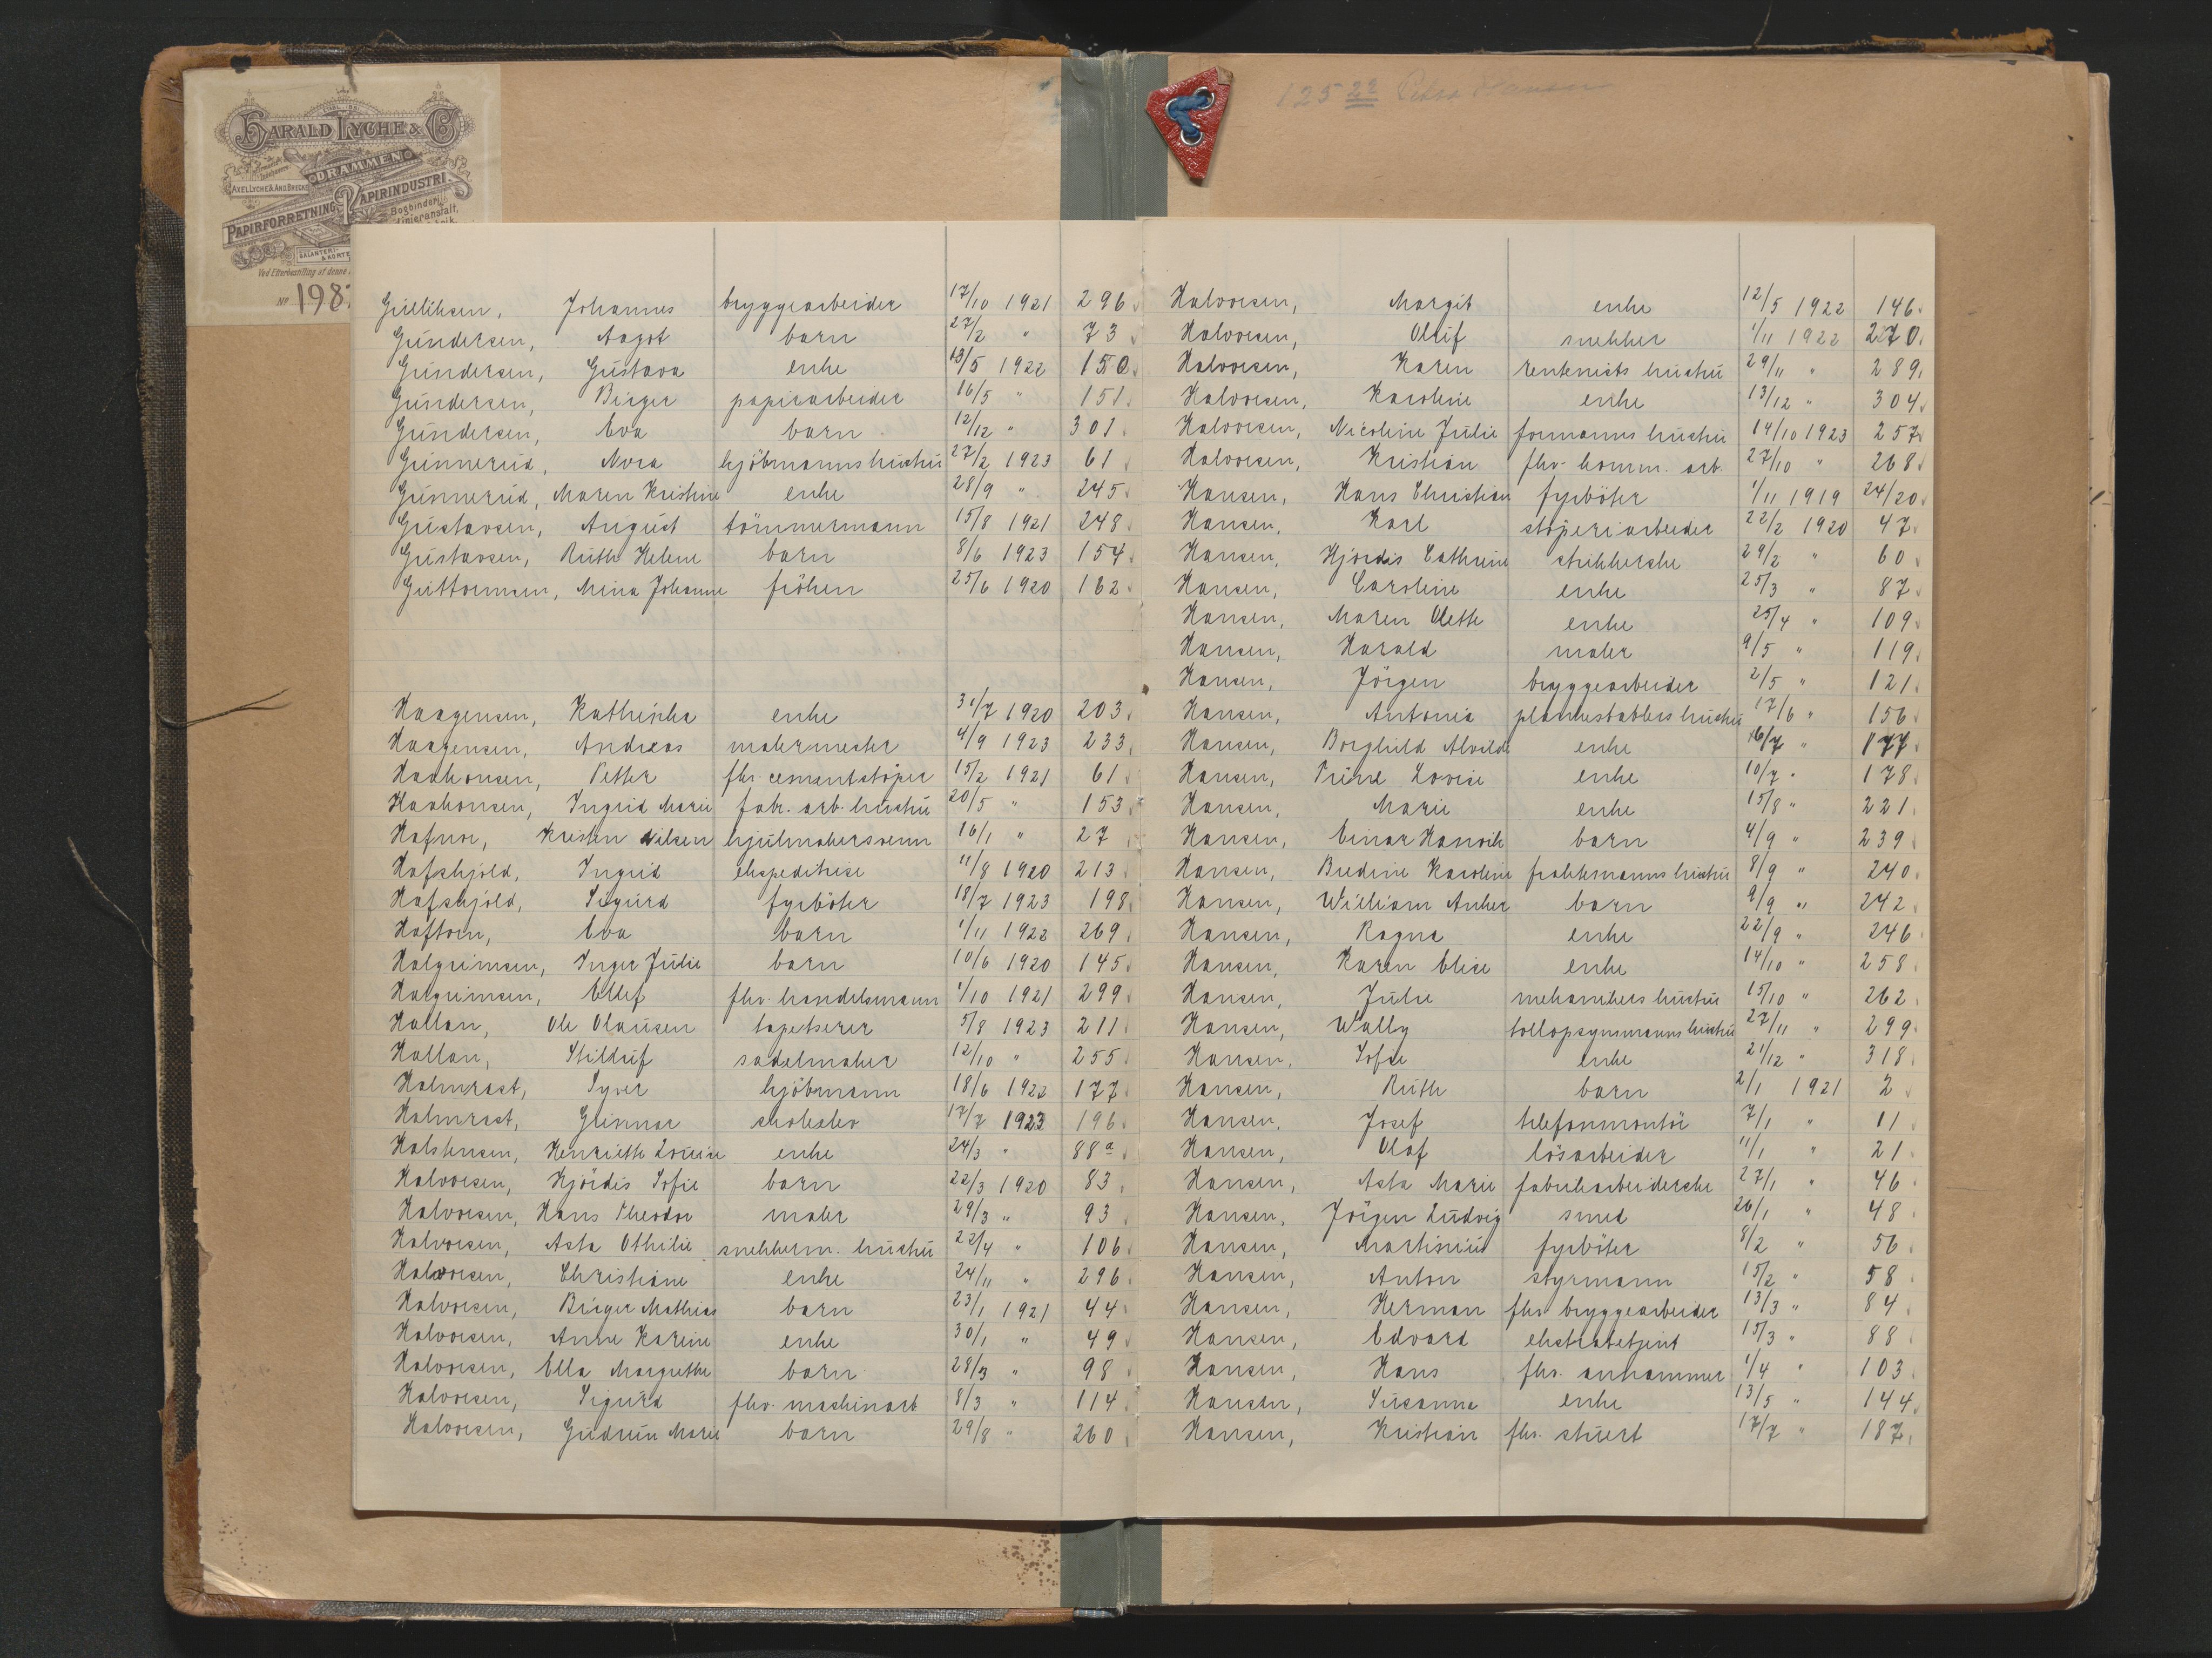 HARALD LYCHE & Co
DRAMMEN
AXEL LYCHE & AND. BRECKE
PAPIRFORRETNING, PAPIRINDUSTRI.
Bogbinderi,
Linieranstalt,
GALANTERI-
& KORTE
Ved Efterbestilling af denne
No 198
125 22 Petra Hansen
Gulliksen, Johannes bryggearbeider 17/10 1921 296
Gundersen, Aagot barn 27/2 " 73
Gundersen, Gustava enke 13/5 1922 150
Gundersen, Birger papirarbeider 16/5 " 151
Gundersen, Eva barn 12/12 " 301
Gunnerud, Nora kjöbmannshustru 27/2 1923 61
Gunnerud, Maren Kristine enke 28/9 " 245
Gustavsen, August tömmermann 15/8 1921 248
Gustavsen, Ruth Helene barn 8/6 1923 154
Guttormsen, Mina Johanne fröken 25/6 1920 162
Haagensen, Kathinka enke 31/7 1920 203
Haagensen, Andreas malermester 4/9 1923 233
Haakonsen, Petter fhv. cementstöper 15/2 1921 61
Haakonsen, Ingrid Marie fabr. arb. hustru 20/5 " 153
Hafnor, Kristen Nilsen hjulmakersvenn 16/1 " 27
Hafskjold, Ingrid ekspeditrise 11/8 1920 213
Hafskjold, Sigurd fyrböter 18/7 1923 198
Haftorn, Eva barn 1/11 1922 269
Halgrimsen, Inger Julie barn 10/6 1920 145
Halgrimsen, Ellef fhv. handelsmann 1/10 1921 299
Hallan, Ole Olausen tapetserer 5/8 1923 211
Hallan, Stilluf sadelmaker 12/10 " 255
Halmrast, Syver kjöbmann 18/6 1922 177
Halmrast, Gunnar skoleelev 17/7 1923 196
Halstensen, Henriette Lovise enke 24/3 " 88a
Halvorsen, Hjördis Sofie barn 22/3 1920 83
Halvorsen, Hans Theodor maler 29/3 " 93
Halvorsen, Asta Othilie snekkerm. hustru 22/4 " 106
Halvorsen, Christiane enke 24/11 " 296
Halvorsen, Birger Mathias barn 23/1 1921 44
Halvorsen, Anne Karine enke 30/1 " 49
Halvorsen, Ella Margrethe barn 28/3 " 98
Halvorsen, Sigurd fhv. maskinarb 8/3 " 114
Halvorsen, Gudrun Marie barn 29/8 " 260
Halvorsen, Margit enke 12/5 1922 146
Halvorsen, Oluf snekker 1/11 1922 270
Halvorsen, Karen rentenists hustru 29/11 " 289
Halvorsen, Karoline enke 13/12 " 304
Halvorsen, Nicoline Julie formanns hustru 14/10 1923 257
Halvorsen, Kristian fhv. komm. arb. 27/10 " 268
Hansen, Hans Christian fyrböter 1/11 1919 24/20
Hansen, Karl stöperiarbeider 22/2 1920 47
Hansen, Hjördis Cathrine strikkerske 29/2 " 60
Hansen, Caroline enke 25/3 " 87
Hansen, Maren Olette enke 25/4 " 109
Hansen, Harald maler 9/5 " 119
Hansen, Jörgen bryggearbeider 2/5 " 121
Hansen, Antonia plankestablers hustru 17/6 " 156
Hansen, Borghild Alvilde enke 16/7 " 177
Hansen, Trine Lovise enke 10/7 " 178
Hansen, Marie enke 15/8 " 221
Hansen, Einar Hansvik barn 4/9 " 239
Hansen, Bredine Karoline fraktemanns hustru 8/9 " 240
Hansen, William Anker barn 9/9 " 242
Hansen, Ragna enke 22/9 " 246
Hansen, Karen Elise enke 14/10 " 258
Hansen, Julie mekanikers hustru 15/10 " 262
Hansen, Wally tollopsynsmanns hustru 27/11 " 299
Hansen, Sofie enke 21/12 " 318
Hansen, Ruth barn 2/1 1921 2
Hansen, Josef telefonmontör 7/1 " 11
Hansen, Olaf lösarbeider 11/1 " 21
Hansen, Asta Marie fabrikarbeiderske 27/1 " 46
Hansen, Jörgen Ludvig smed 26/1 " 48
Hansen, Martinius fyrböter 8/2 " 56
Hansen, Anton styrmann 15/2 " 58
Hansen, Herman fhv. bryggearbeider 13/3 " 84
Hansen, Edvard ekstrabetjent 15/3 " 88
Hansen, Hans fhv. anhammer 1/4 " 103
Hansen, Susanna enke 13/5 " 144
Hansen, Kristian fhv. stuert 17/7 " 187